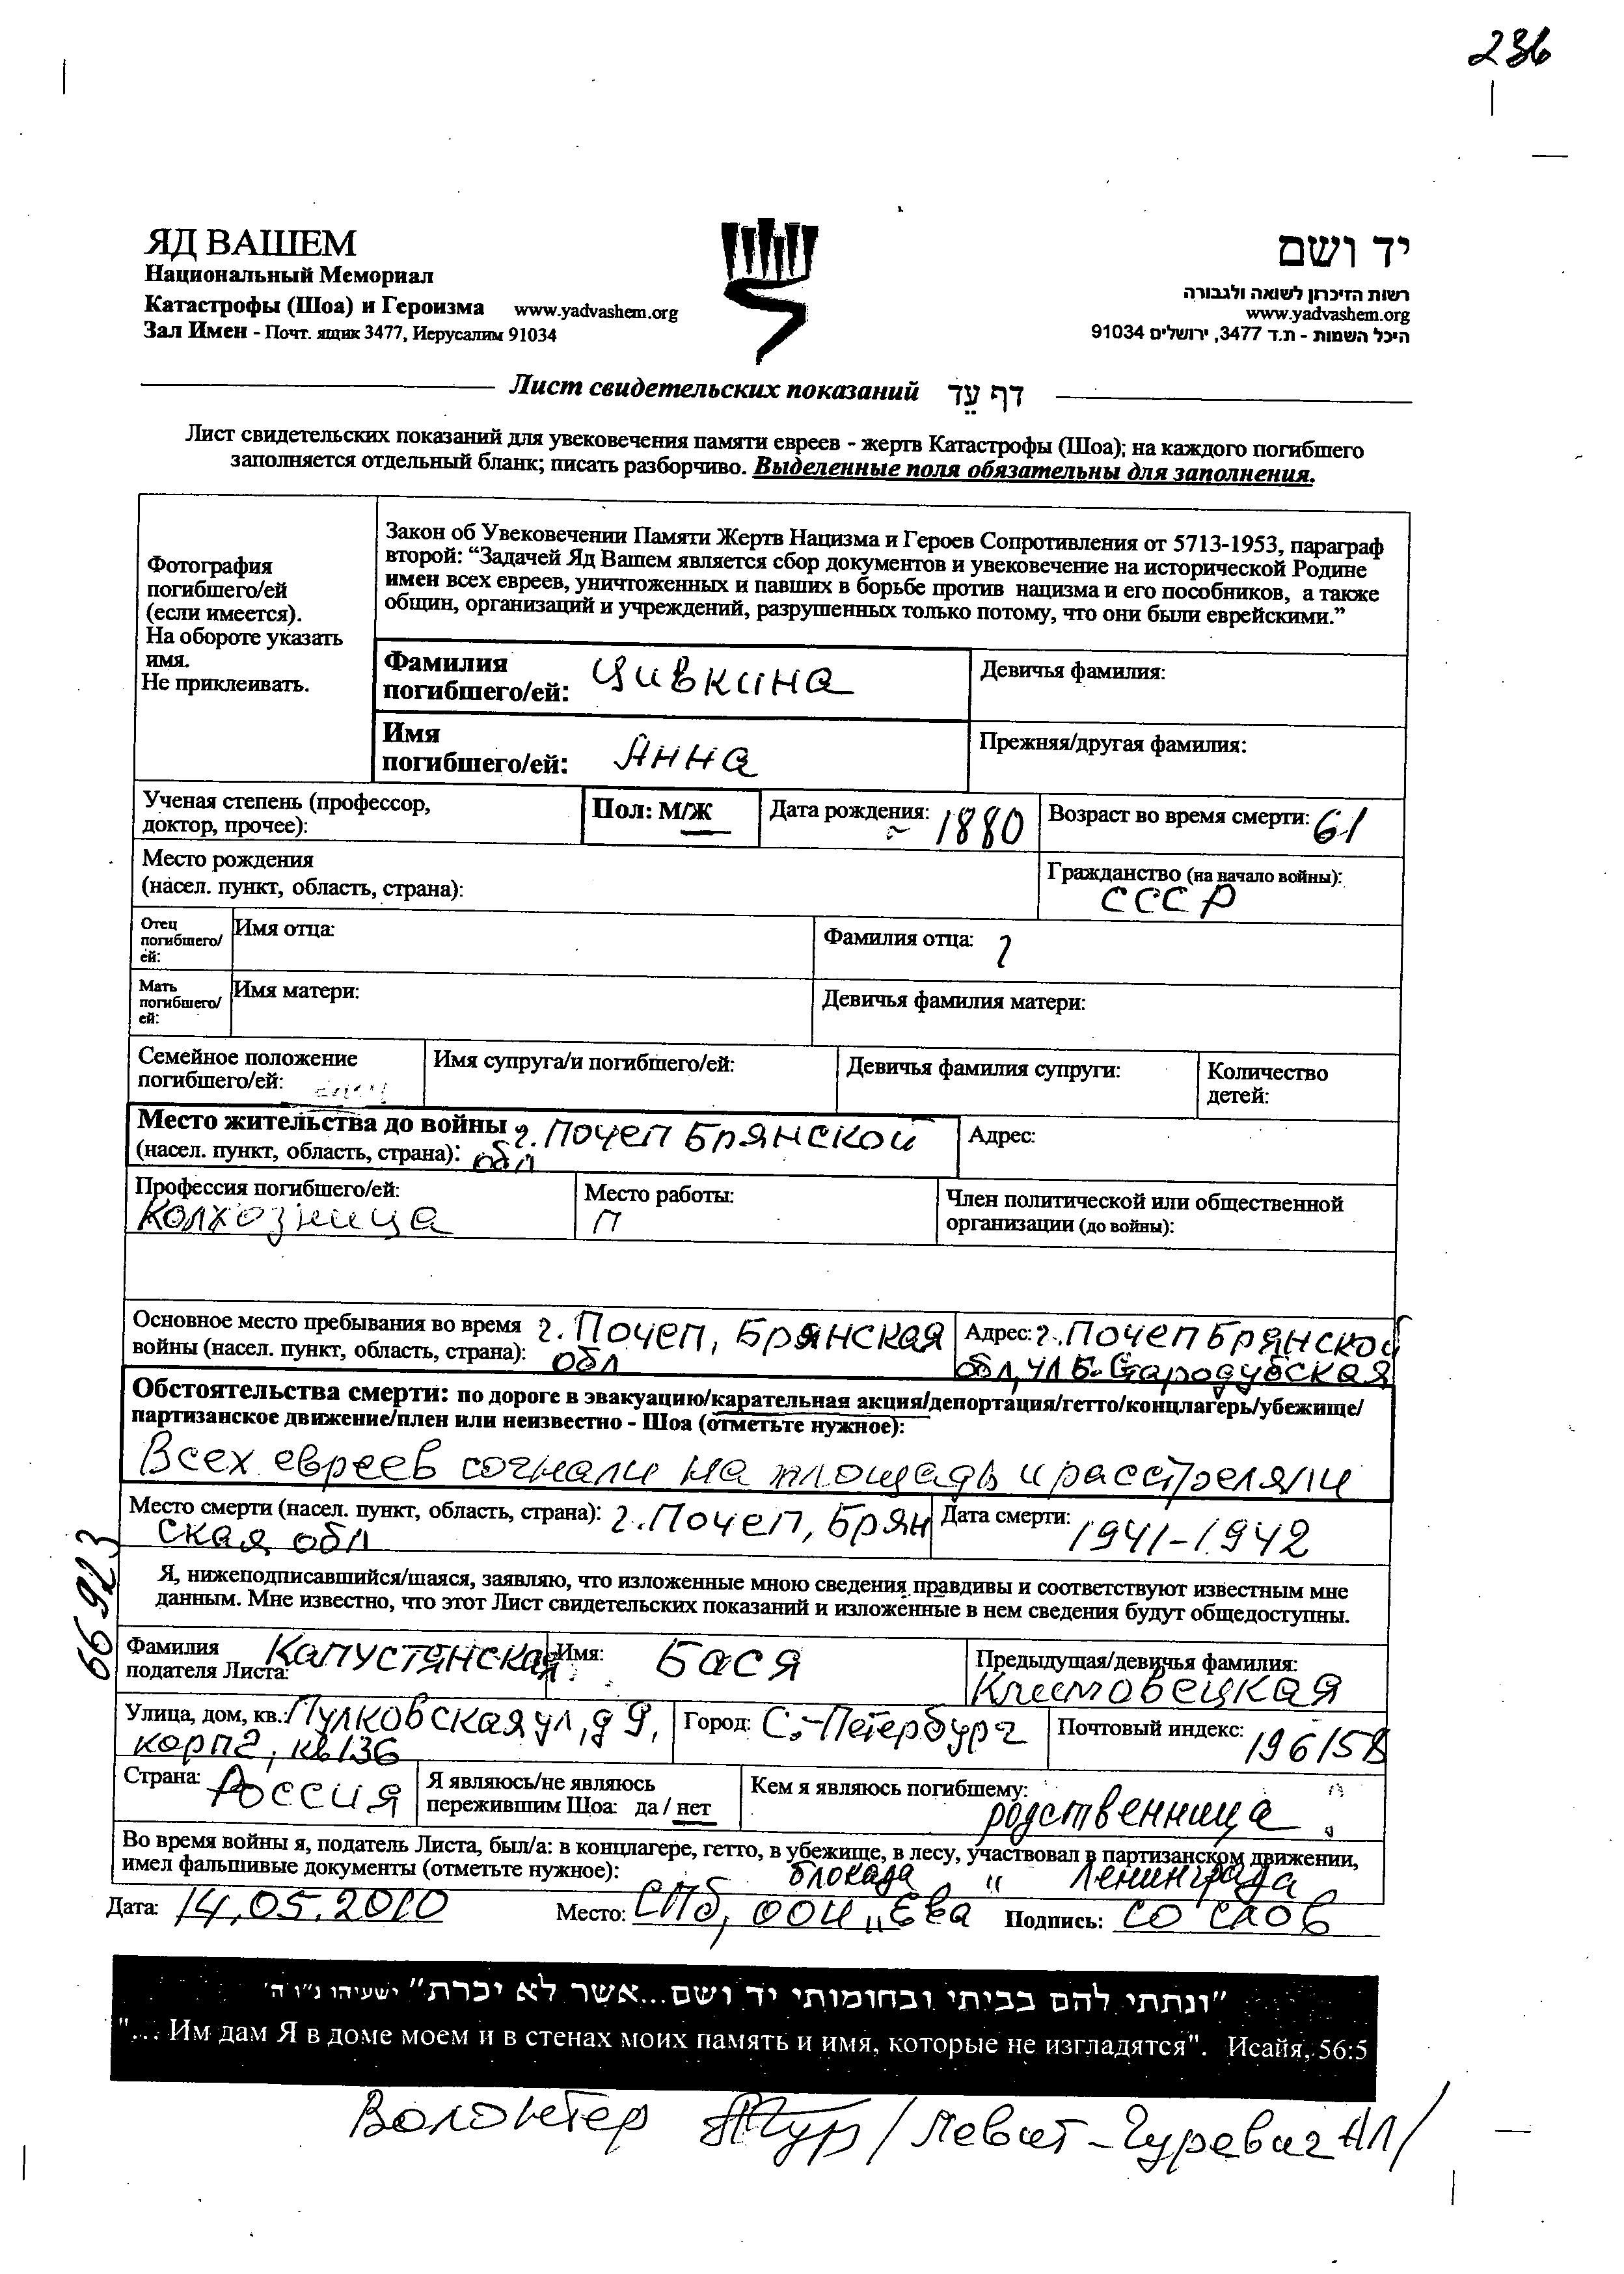 236
ЯД ВАШЕМ
Национальный Мемориал
Катастрофы (Шоа) и Героизма www.yadvashem.org
Зал Имен - Почт. ящик 3477, Иерусалим 91034
יד ושם
רשות הזיכרון לשואה ולגבורה
www.yadvashem.org
היכל השמות - ת.ד 3477, ירושלים 91034
Лист свидетельских показаний דף עֵד
Лист свидетельских показаний для увековечения памяти евреев - жертв Катастрофы (Шоа); на каждого погибшего
заполняется отдельный бланк; писать разборчиво. Выделенные поля обязательны для заполнения.
Фотография
погибшего/ей
(если имеется).
На обороте указать
имя.
Не приклеивать.
Закон об Увековечении Памяти Жертв Нацизма и Героев Сопротивления от 5713-1953, параграф
второй: “Задачей Яд Вашем является сбор документов и увековечение на исторической Родине
имен всех евреев, уничтоженных и павших в борьбе против нацизма и его пособников, а также
общин, организаций и учреждений, разрушенных только потому, что они были еврейскими.”
Фамилия
погибшего/ей: Цивкина
Девичья фамилия:
Имя
погибшего/ей: Анна
Прежняя/другая фамилия:
Ученая степень (профессор,
доктор, прочее):
Пол: М/Ж
Дата рождения: ~ 1880
Возраст во время смерти: 61
Место рождения
(насел. пункт, область, страна):
Гражданство (на начало войны):
СССР
Отец
погибшего/
ей:
Имя отца:
Фамилия отца: ?
Мать
погибшего/
ей:
Имя матери:
Девичья фамилия матери:
Семейное положение
погибшего/ей:
Имя супруга/и погибшего/ей:
Девичья фамилия супруги:
Количество
детей:
Место жительства до войны г. Почеп Брянской
(насел. пункт, область, страна): обл
Адрес:
Профессия погибшего/ей:
Колхозница
Место работы:
П
Член политической или общественной
организации (до войны):
Основное место пребывания во время г. Почеп, Брянская
войны (насел. пункт, область, страна): обл
Адрес: г. Почеп Брянской
обл, ул Б. Стародубская
Обстоятельства смерти: по дороге в эвакуацию/карательная акция/депортация/гетто/концлагерь/убежище/
партизанское движение/плен или неизвестно - Шоа (отметьте нужное):
Всех евреев согнали на площадь и расстреляли
Место смерти (насел. пункт, область, страна): г. Почеп, Брян
ская обл
Дата смерти: 1941-1942
66 923
Я, нижеподписавшийся/шаяся, заявляю, что изложенные мною сведения правдивы и соответствуют известным мне
данным. Мне известно, что этот Лист свидетельских показаний и изложенные в нем сведения будут общедоступны.
Фамилия
подателя Листа: Капустянская
Имя: Бася
Предыдущая/девичья фамилия:
Климовецкая
Улица, дом, кв.: Пулковская ул, д 9,
корп 2, кв 136
Город: С.-Петербург
Почтовый индекс: 196158
Страна: Россия
Я являюсь/не являюсь
пережившим Шоа: да / нет
Кем я являюсь погибшему:
родственница
Во время войны я, податель Листа, был/а: в концлагере, гетто, в убежище, в лесу, участвовал в партизанском движении,
имел фальшивые документы (отметьте нужное): блокада " Ленинграда
Дата: 14.05.2010 Место: СПб, ООИ „Ева Подпись: со слов
"ונתתי להם בביתי ובחומותי יד ושם...אשר לא יכרת" ישעיהו נ"ו ה'
"... Им дам Я в доме моем и в стенах моих память и имя, которые не изгладятся". Исайя, 56:5
Волонтер /Левит-Гуревич АЛ/